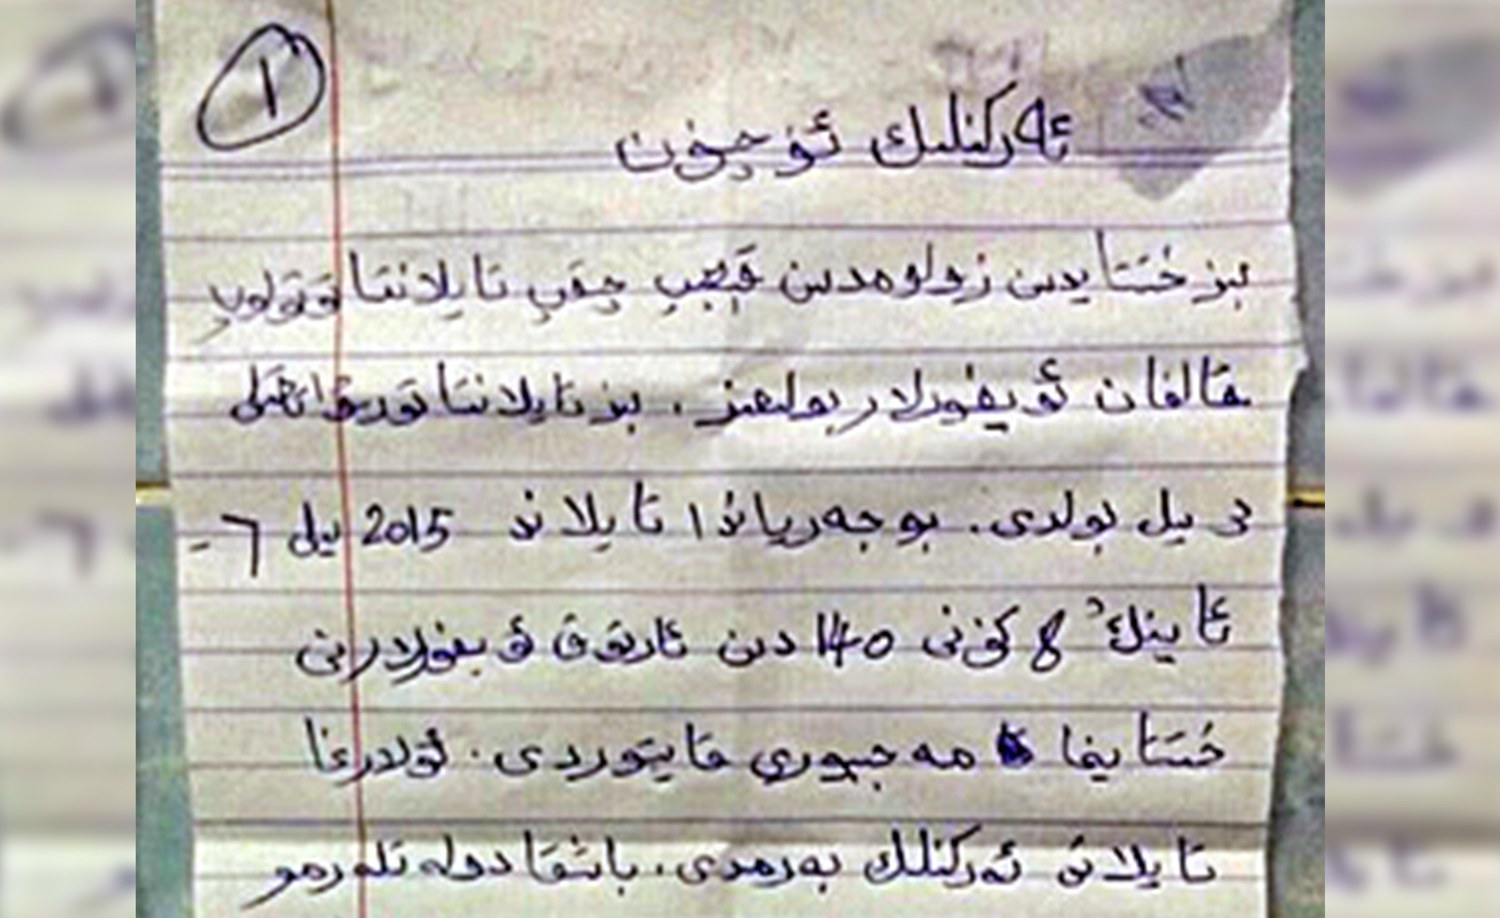 ١
ئەركىلىك ئۈچۈن
بىز خىتايدىن زولۇمدىن قېچىپ چىقىپ تايلانتتا تۇتۇلۇپ
قالغان ئۇيغۇرلار بولىمىز. بىز تايلانتتا تۇرىۋاتقىلى
ئى يىل بولدى. بۇ جەرياندا تايلاند 2015 يىل ٦-
ئاينىڭ 8 كۈنى 140 دىن ئارتۇق ئۇيغۇرلارنى
خىتايغا مەجبۇرى قايتۇردى. ئۇلارغا
تايلانت ئەركىلىك بەرمىدى. باشقا دولەتلەرمۇ